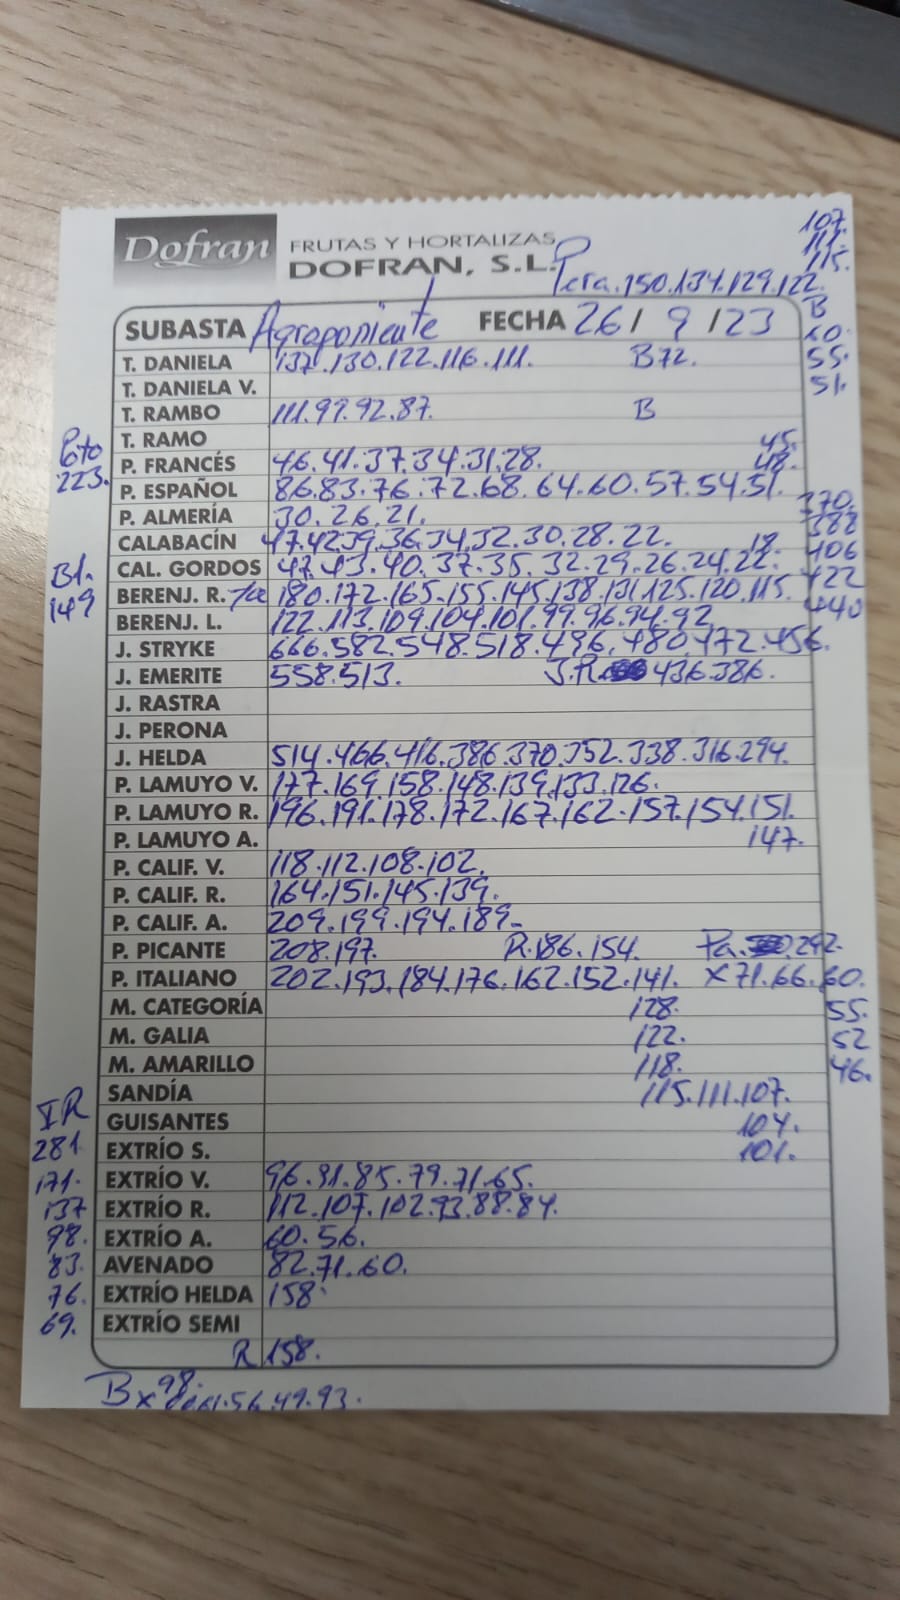 107.
111.
Dofran FRUTAS Y HORTALIZAS 115.
DOFRAN, S.L. Pera.150.134.129.122.
B
SUBASTA Agroponiente FECHA 26/9/23 60.
T. DANIELA 137.130.122.116.111. B72. 55.
T. DANIELA V. 51.
T. RAMBO 111.99.92.87. B
T. RAMO 45.
P. FRANCÉS 46.41.37.34.31.28. 48.
223. P. ESPAÑOL 86.83.76.72.68.64.60.57.54.51.
P. ALMERÍA 30.26.21. 370.
388
CALABACÍN 47.42.39.36.34.32.30.28.22. 18 406
Bl. CAL. GORDOS 47.43.40.37.35.32.29.26.24.22. 422
149 BERENJ. R. 180.172.165.155.145.138.131.125.120.115. 440
BERENJ. L. 122.113.109.104.101.99.96.94.92
J. STRYKE 666.582.548.518.496.480.472.456.
J. EMERITE 558.513. J.R. 436.386.
J. RASTRA
J. PERONA
J. HELDA 514.466.416.386.370.352.338.316.294.
P. LAMUYO V. 177.169.158.148.139.133.126.
P. LAMUYO R. 196.191.178.172.167.162.157.154.151.
P. LAMUYO A. 147.
P. CALIF. V. 118.112.108.102.
P. CALIF. R. 164.151.145.139.
P. CALIF. A. 209.199.194.189.
P. PICANTE 208.197. R.186.154. Pa. 292.
P. ITALIANO 202.193.184.176.162.152.141. X71.66.60.
M. CATEGORÍA 128. 55.
M. GALIA 122. 52
M. AMARILLO 118. 46.
SANDÍA 115.111.107.
IR GUISANTES 104.
281 EXTRÍO S. 101.
171. EXTRÍO V. 96.91.85.79.71.65.
137 EXTRÍO R. 112.107.102.93.88.84.
98. EXTRÍO A. 60.56.
83. AVENADO 82.71.60.
76. EXTRÍO HELDA 158.
69. EXTRÍO SEMI
R 158.
Bx98.
56.49.93.